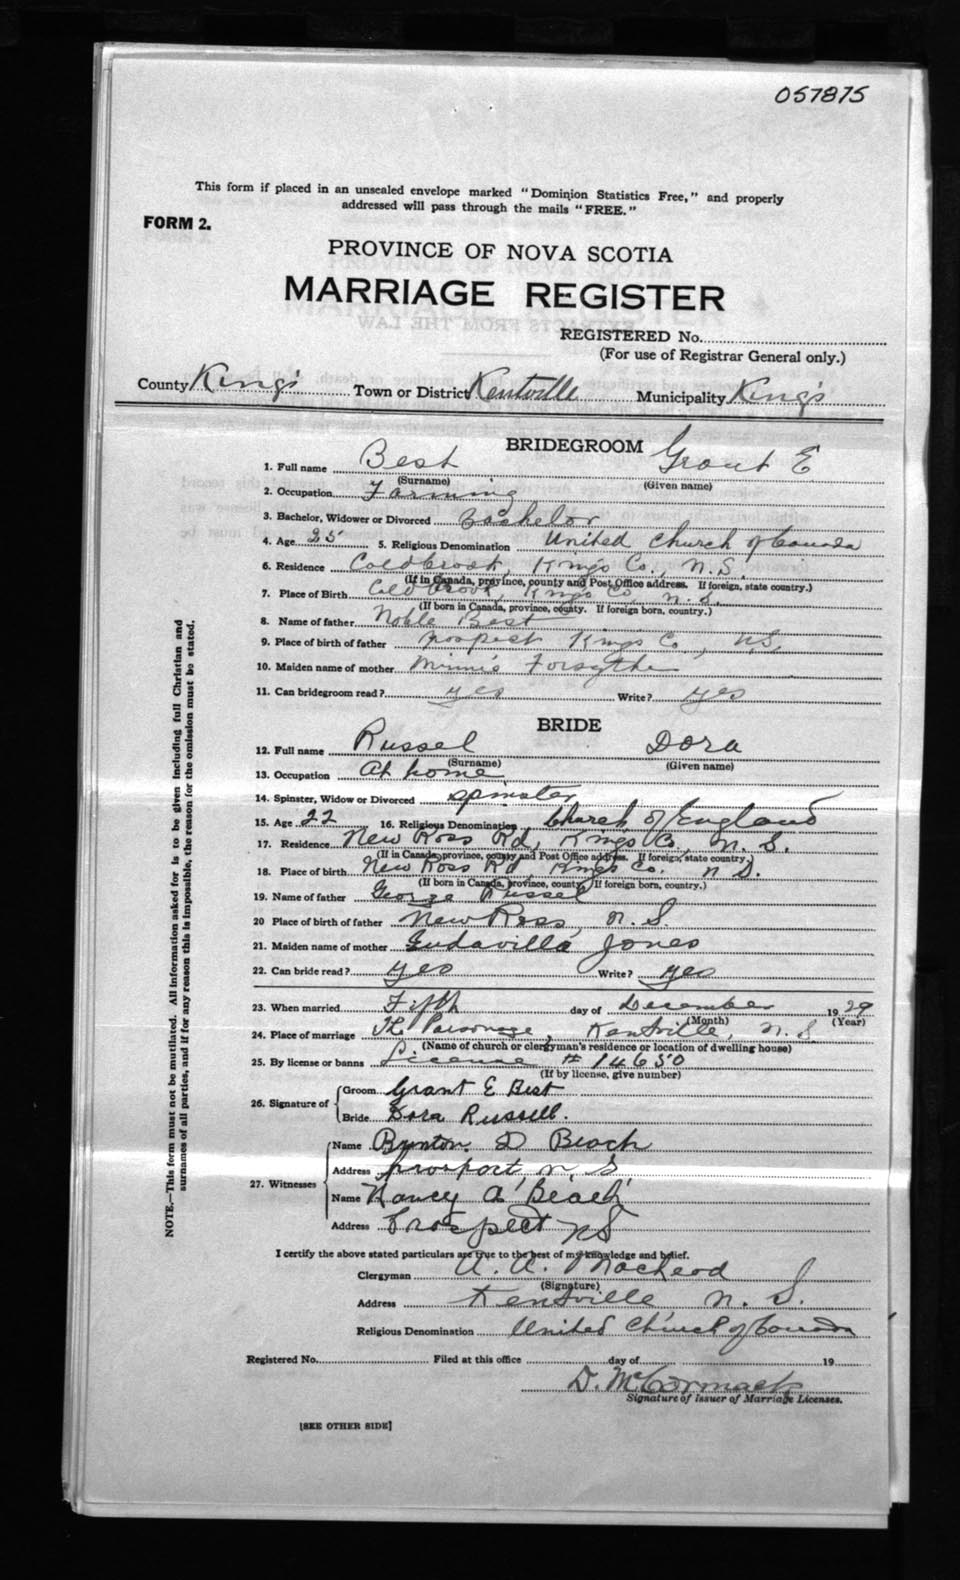 057875
This form if placed in an unsealed envelope marked "Dominion Statistics Free," and properly
addressed will pass through the mails "FREE."
FORM 2.
PROVINCE OF NOVA SCOTIA
MARRIAGE REGISTER
REGISTERED No.
(For use of Registrar General only.)
County King's Town or District Kentville Municipality King's
BRIDEGROOM
1. Full name Best Grant E
(Surname) (Given name)
2. Occupation Farming
3. Bachelor, Widower or Divorced Bachelor
4. Age 25 5. Religious Denomination United Church of Canada
6. Residence Coldbrook, Kings Co., N.S.
(If in Canada, province, county and Post Office address. If foreign, state country.)
7. Place of Birth Coldbrook, Kings Co N.S.
(If born in Canada, province, county. If foreign born, country.)
8. Name of father Noble Best
9. Place of birth of father Prospect Kings Co, N.S.
10. Maiden name of mother Minnie Forsythe
11. Can bridegroom read? yes Write? yes
BRIDE
12. Full name Russel Dora
(Surname) (Given name)
13. Occupation At home
14. Spinster, Widow or Divorced spinster
15. Age 22 16. Religious Denomination Church of England
17. Residence New Ross Rd, Kings Co, N.S.
(If in Canada, province, county and Post Office address. If foreign, state country.)
18. Place of birth New Ross Rd, Kings Co. N S.
(If born in Canada, province, county. If foreign born, country.)
19. Name of father George Russel
20 Place of birth of father New Ross, N.S.
21. Maiden name of mother Jones
22. Can bride read? yes Write? yes
23. When married Fifth day of December 1929
(Month) (Year)
24. Place of marriage The Parsonage, Kentville, N.S.
(Name of church or clergyman's residence or location of dwelling house)
25. By license or banns License # 14650
(If by license, give number)
26. Signature of Groom Grant E Best
Bride Dora Russell.
27. Witnesses Name D Beach
Address N S
Name Nancy A Beach
Address Prospect NS
I certify the above stated particulars are true to the best of my knowledge and belief.
Clergyman A. A. MacLeod
(Signature)
Address Kentville, N. S.
Religious Denomination United Church of Canada
Registered No. Filed at this office day of 19
D. McCormack
Signature of Issuer of Marriage Licenses.
[SEE OTHER SIDE]
NOTE.—This form must not be mutilated. All information asked for is to be given including full Christian and
surnames of all parties, and if for any reason this is impossible, the reason for the omission must be stated.